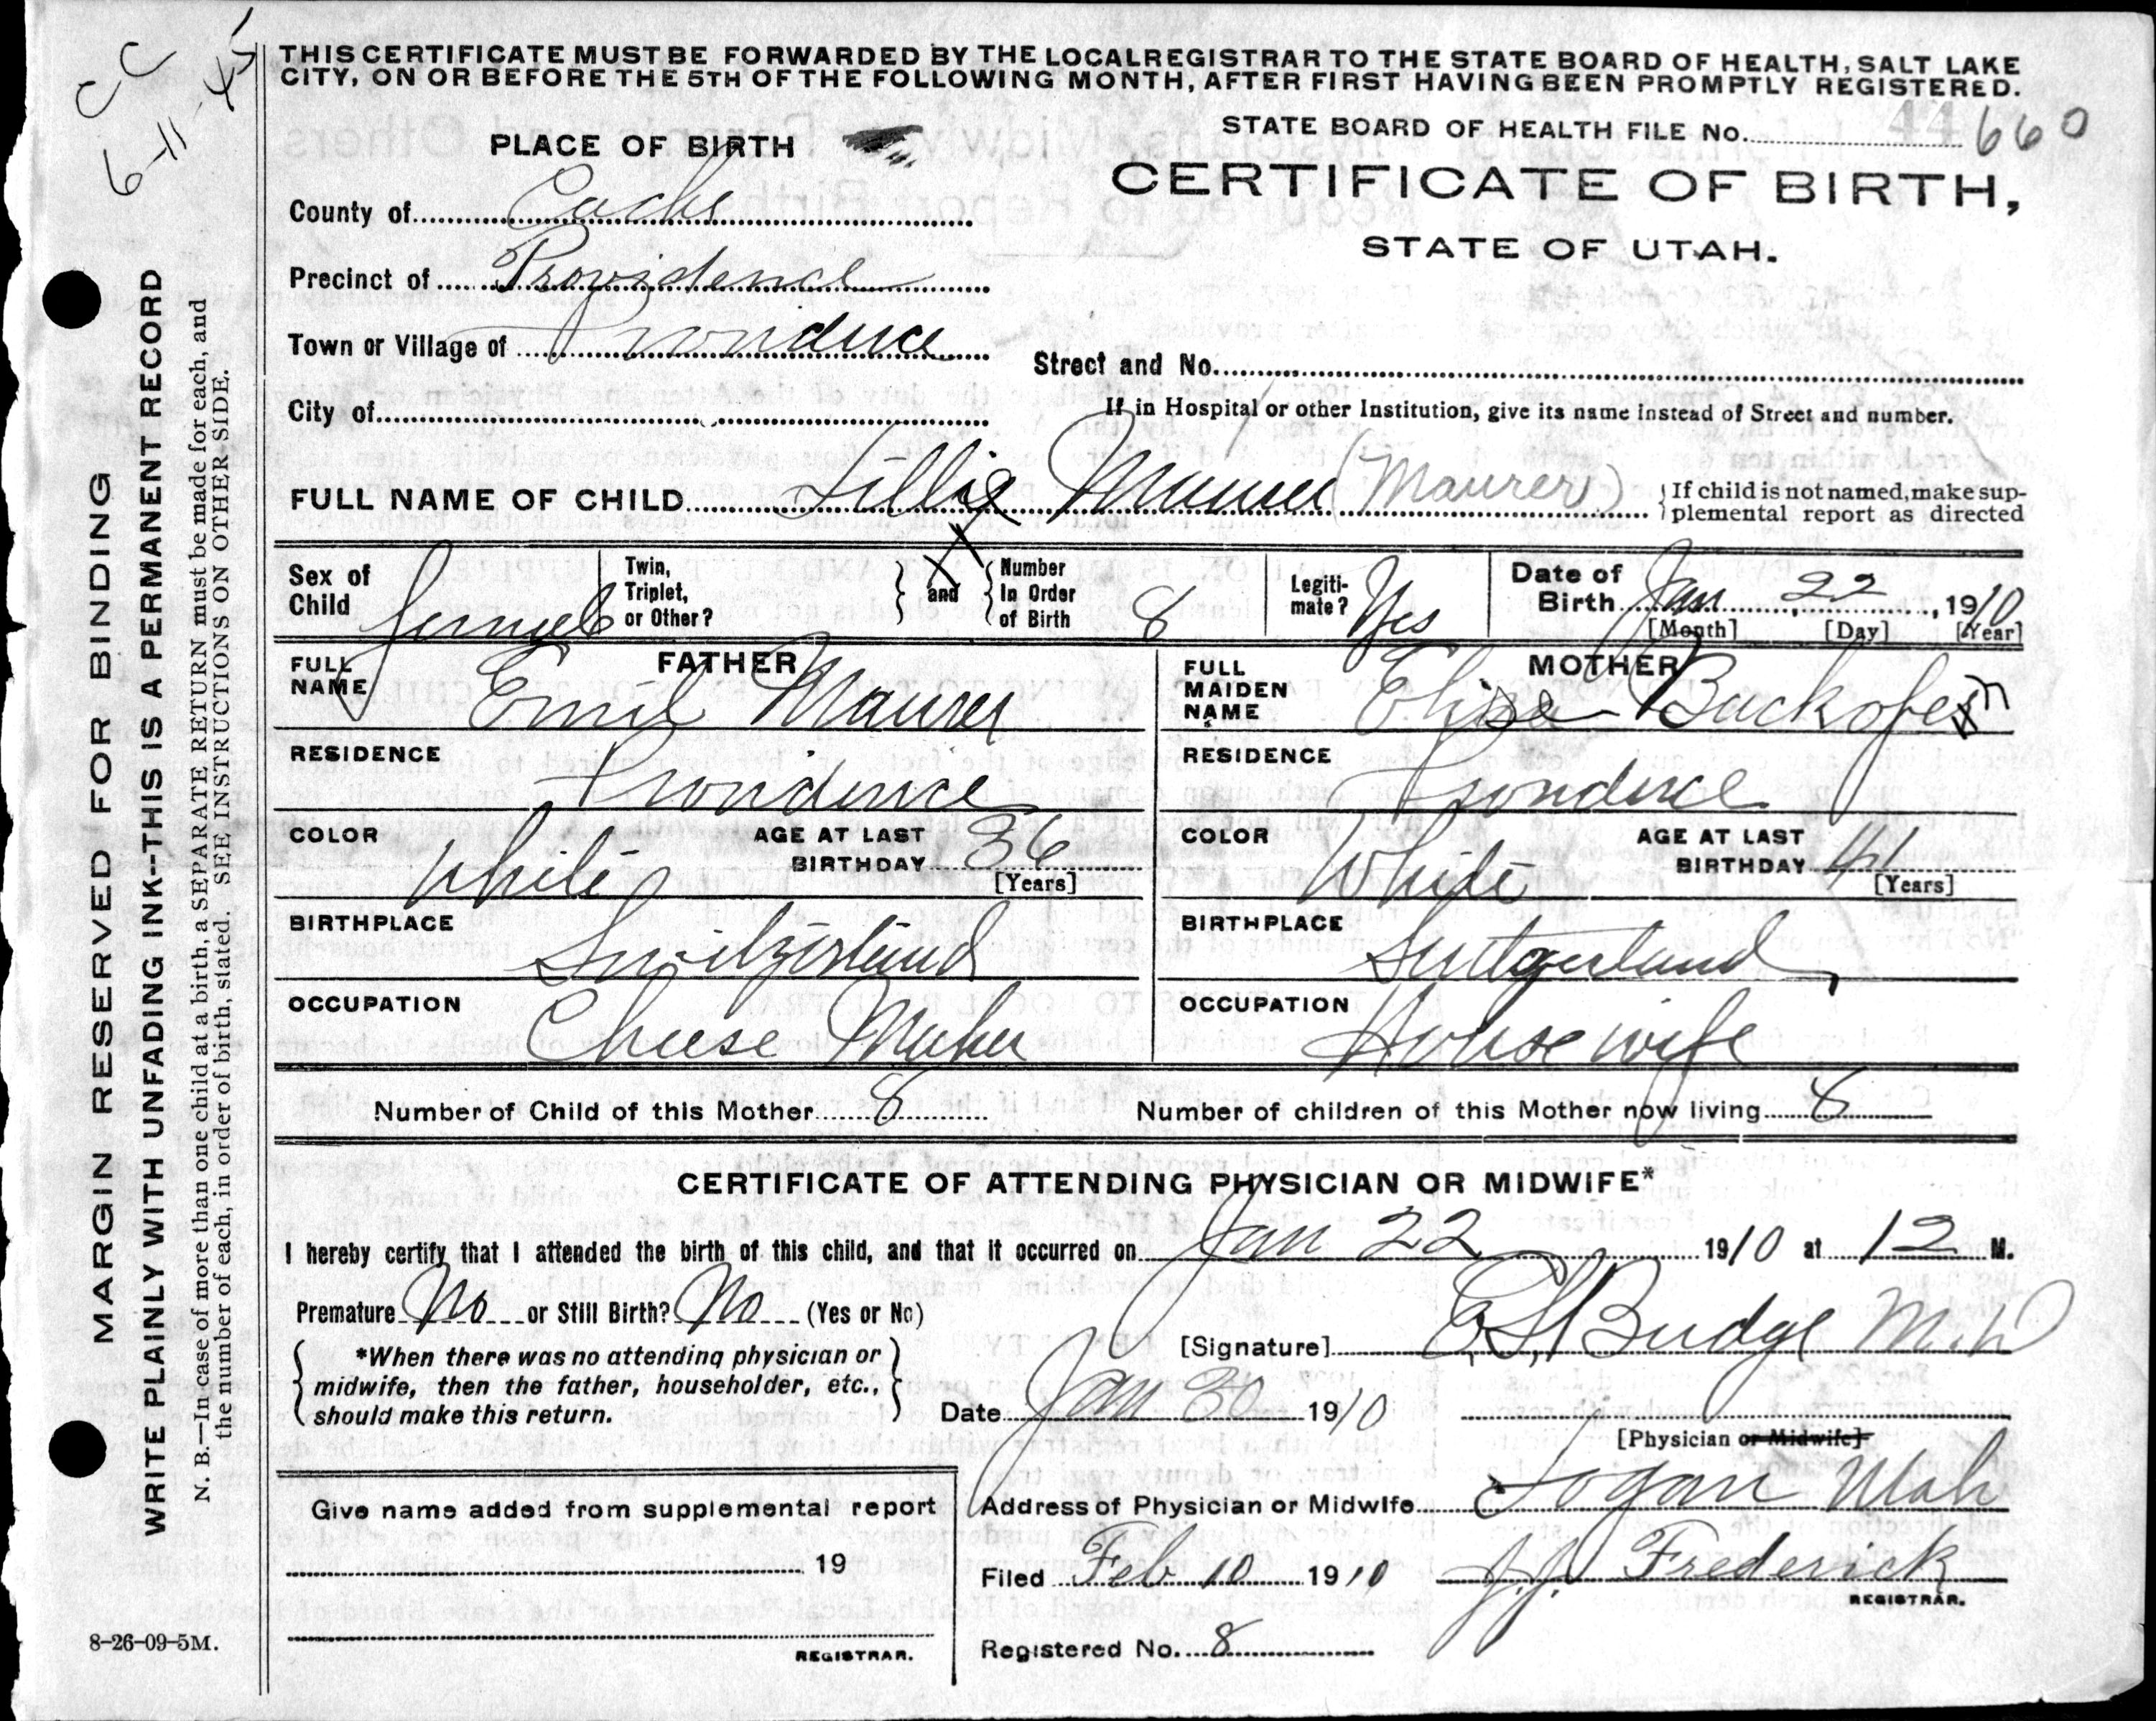 CC
6-11-45
THIS CERTIFICATE MUST BE FORWARDED BY THE LOCAL REGISTRAR TO THE STATE BOARD OF HEALTH, SALT LAKE
CITY, ON OR BEFORE THE 5TH OF THE FOLLOWING MONTH, AFTER FIRST HAVING BEEN PROMPTLY REGISTERED.
STATE BOARD OF HEALTH FILE No. 44 660
CERTIFICATE OF BIRTH,
STATE OF UTAH.
PLACE OF BIRTH
County of Cache
Precinct of Providence
Town or Village of Providence
Street and No.
City of
If in Hospital or other Institution, give its name instead of Street and number.
FULL NAME OF CHILD Lillie Maurer (Maurer) If child is not named, make sup-
plemental report as directed
Sex of Child female
Twin, Triplet, or Other? and Number In Order of Birth 8
Legiti-mate? Yes
Date of Birth Jan 22, 1910
[Month] [Day] [Year]
FATHER
FULL NAME Emil Maurer
RESIDENCE Providence
COLOR White AGE AT LAST BIRTHDAY 36 [Years]
BIRTHPLACE Switzerland
OCCUPATION Cheese Maker
MOTHER
FULL MAIDEN NAME Elise Backofen
RESIDENCE Providence
COLOR White AGE AT LAST BIRTHDAY 41 [Years]
BIRTHPLACE Switzerland
OCCUPATION Housewife
Number of Child of this Mother 8 Number of children of this Mother now living 8
CERTIFICATE OF ATTENDING PHYSICIAN OR MIDWIFE*
I hereby certify that I attended the birth of this child, and that it occurred on Jan 22 1910 at 12 M.
Premature No or Still Birth? No (Yes or No)
[Signature] Budge M.D.
*When there was no attending physician or
midwife, then the father, householder, etc.,
should make this return.
Date Jan 30 1910
[Physician or Midwife]
Address of Physician or Midwife Logan Utah
Give name added from supplemental report
19
REGISTRAR.
Filed Feb 10 1910 J.J. Frederick
REGISTRAR.
Registered No. 8
8-26-09-5M.
MARGIN RESERVED FOR BINDING
WRITE PLAINLY WITH UNFADING INK--THIS IS A PERMANENT RECORD
N. B.—In case of more than one child at a birth, a SEPARATE RETURN must be made for each, and
the number of each, in order of birth, stated. SEE INSTRUCTIONS ON OTHER SIDE.